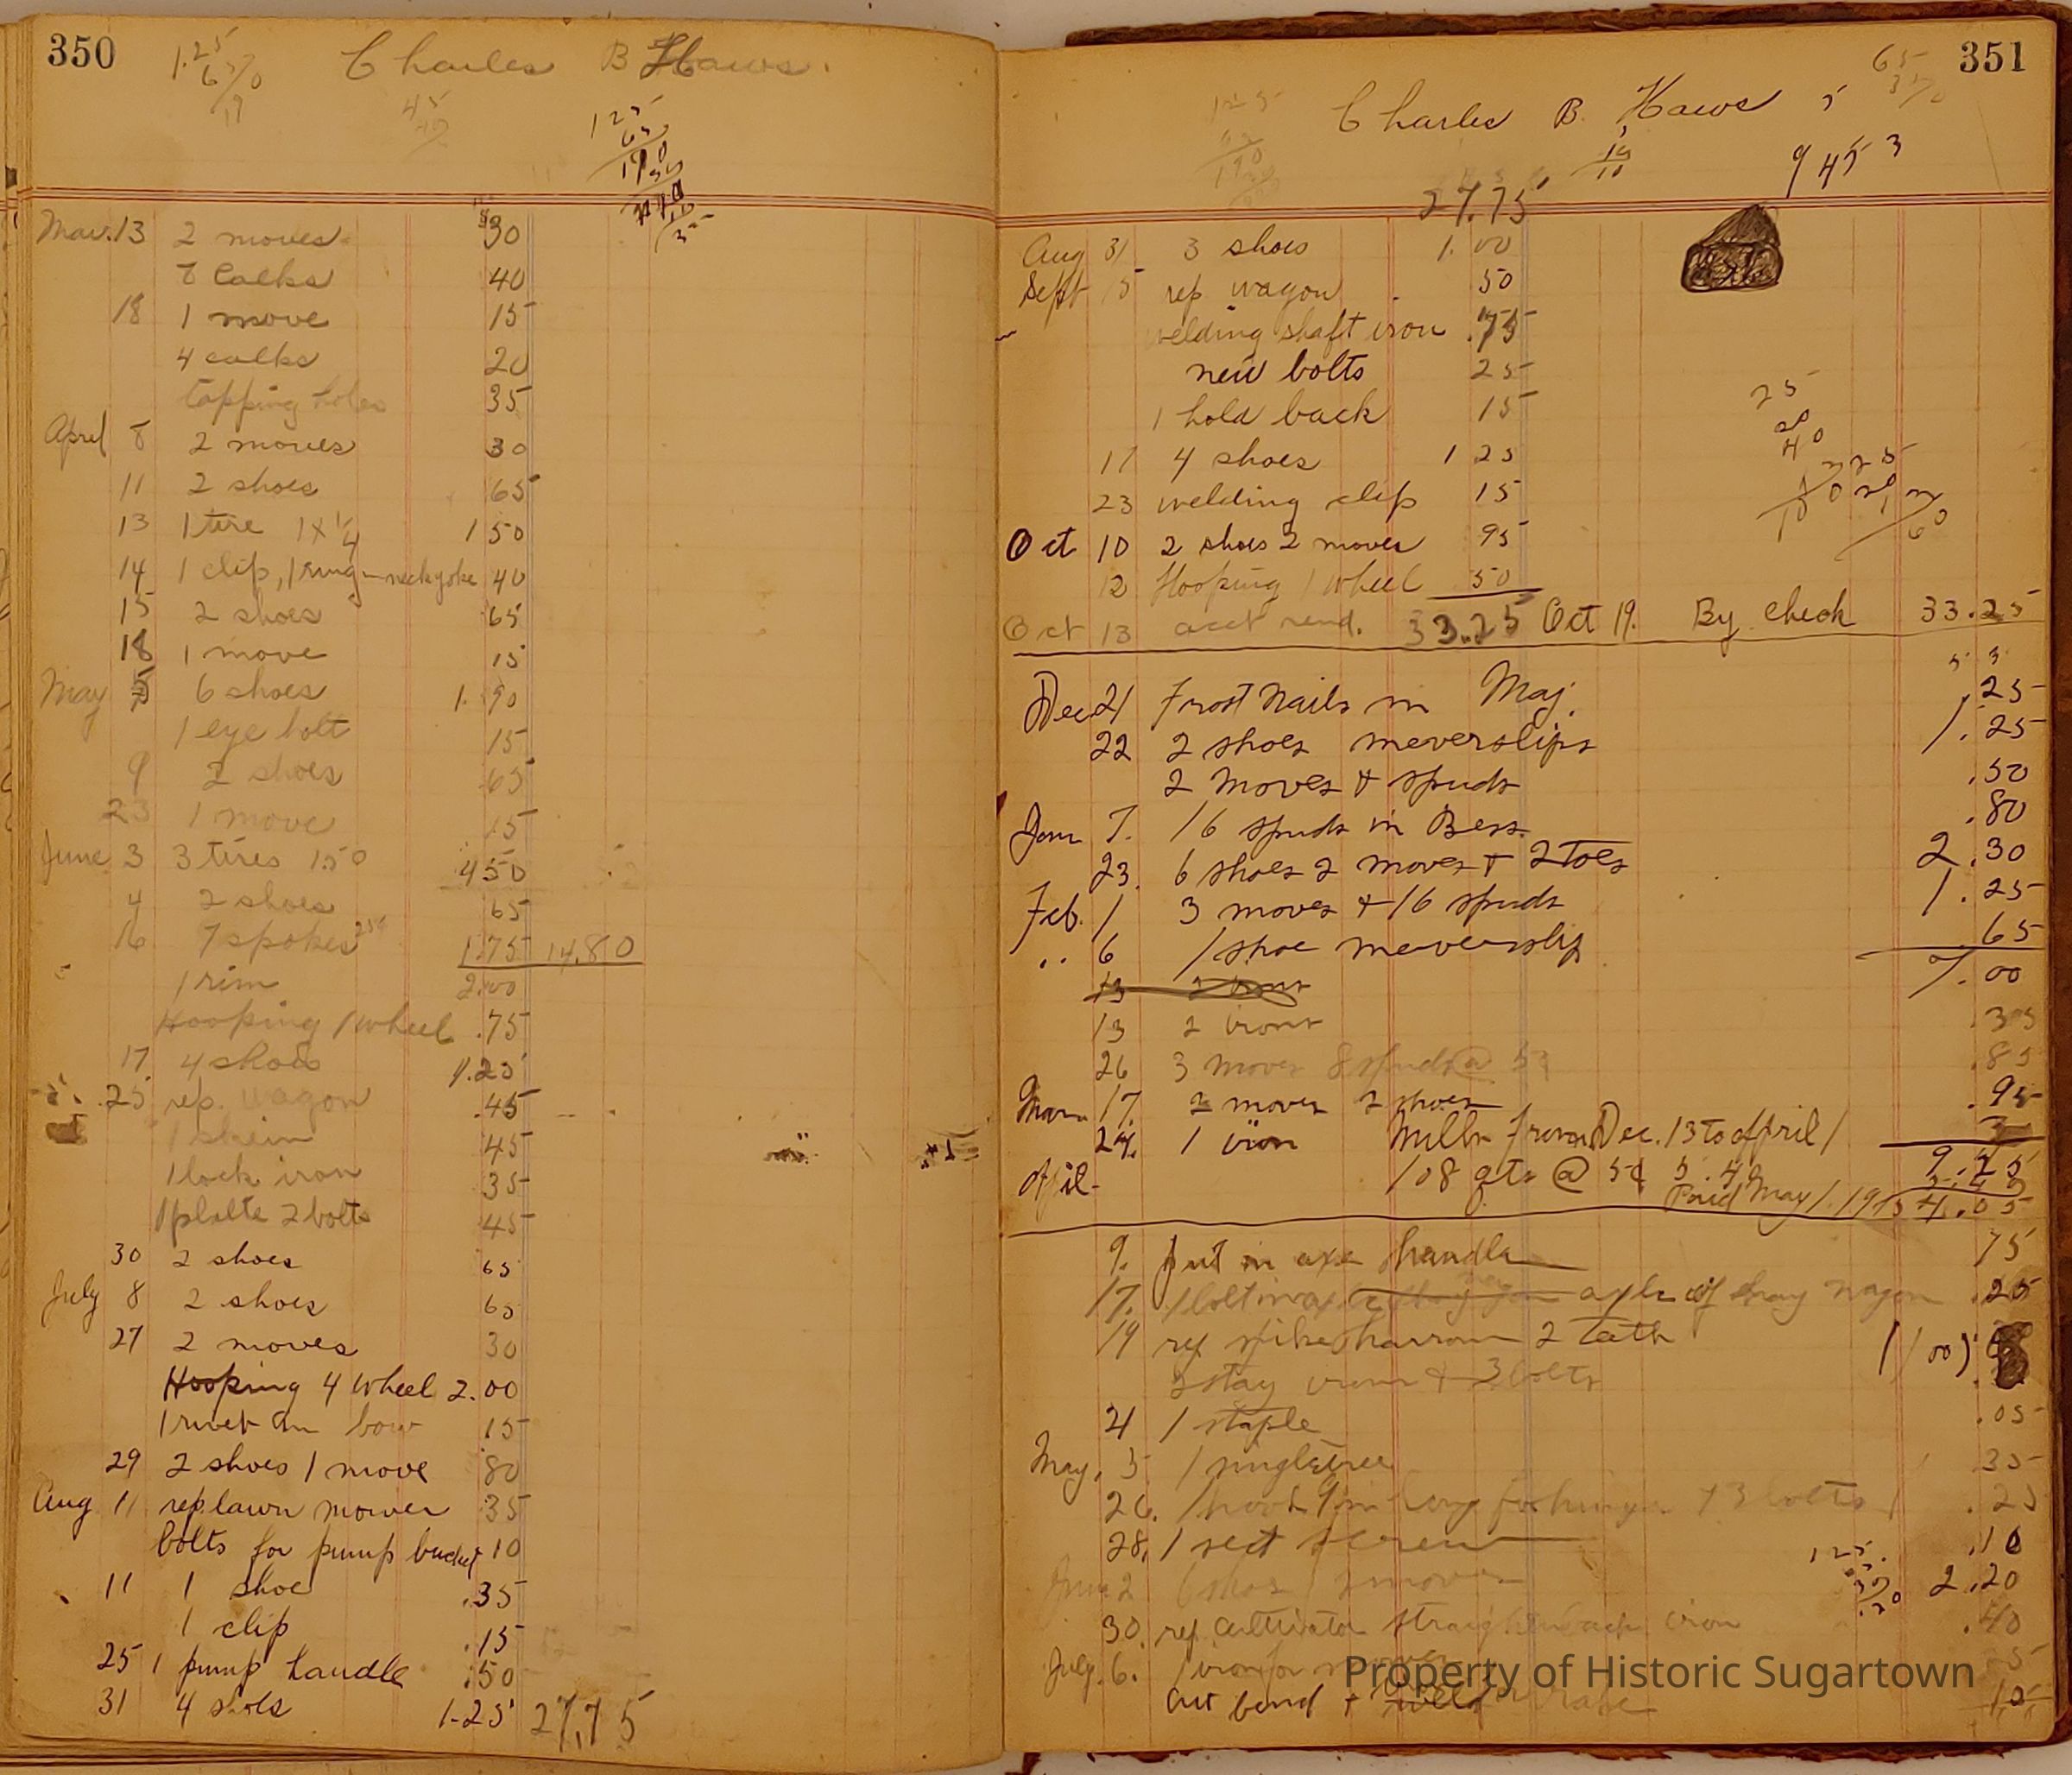 350
1.25
65
Charles B Haws.
45
125
65
190
Mar. 13 2 moves 30
8 Calks 40
18 1 move 15
4 calks 20
topping holes 35
April 8 2 moves 30
11 2 shoes 65
13 1 tire 1 x 1/4 1 50
14 1 clip, 1 ring neckyoke 40
15 2 shoes 65
18 1 move 15
May 5 6 shoes 1.90
1 eye bolt 15
9 2 shoes 65
23 1 move 15
June 3 3 tires 1.50 4 50
4 2 shoes 65
16 7 spokes 25¢ 1.75 14.80
1 rim 2.00
Hooping 1 wheel .75
17 4 shoes 1.25
25 rep. wagon .45
1 skein 45
1 lock iron 35
1 plate 2 bolts 45
30 2 shoes 65
July 8 2 shoes 65
27 2 moves 30
Hooping 4 wheel 2.00
1 rivet in bow 15
29 2 shoes 1 move 80
Aug 11 rep. lawn mower 35
bolts for pump bucket 10
11 1 shoe .35
1 clip .15
25 1 pump handle .50
31 4 shoes 1.25 27.75
351
65
Charles B. Haws
9 45 3
27.75
Aug 31 3 shoes 1.00
Sept 15 rep wagon 50
welding shaft iron .75
new bolts 25
1 hold back 15
17 4 shoes 1 25
23 welding clip 15
Oct 10 2 shoes 2 moves 95
12 Hooping 1 wheel 50
Oct 13 acct rend. 33.25 Oct 19. By check 33.25
25
20
40
Dec. 21 Frost Nails in Maj. .25
22 2 shoes neverslips 1.25
2 moves & spuds .50
Jan 7. 16 spuds in Bess. .80
23. 6 shoes 2 moves & 2 Toes 2.30
Feb. 1 3 moves & 16 spuds 1.25
" 6 1 shoe neverslip 65
7.00
13 2 irons
13 2 irons
26 3 moves 8 spuds @ 5¢ .85
Mar. 17. 2 moves 2 shoes .95
24. 1 iron Milk From Dec. 13 to April 1
April 108 qts @ 5¢ 5.4
Paid May 1. 1915 4.05
9. put in axe handle 75
17. 1 bolt in axle of wagon .25
19 rep spike harrow 2 teeth (1 00)
2 stay irons & 3 bolts
21 1 staple .05
May. 5 1 singletree 35
26. 1 hook & 3 bolts .25
28. 1 set screw .10
125
June 2 6 shoes 2 moves 2.20
30. rep cultivator iron .40
July. 6. 1 iron for mower
cut bend & weld 10
Property of Historic Sugartown